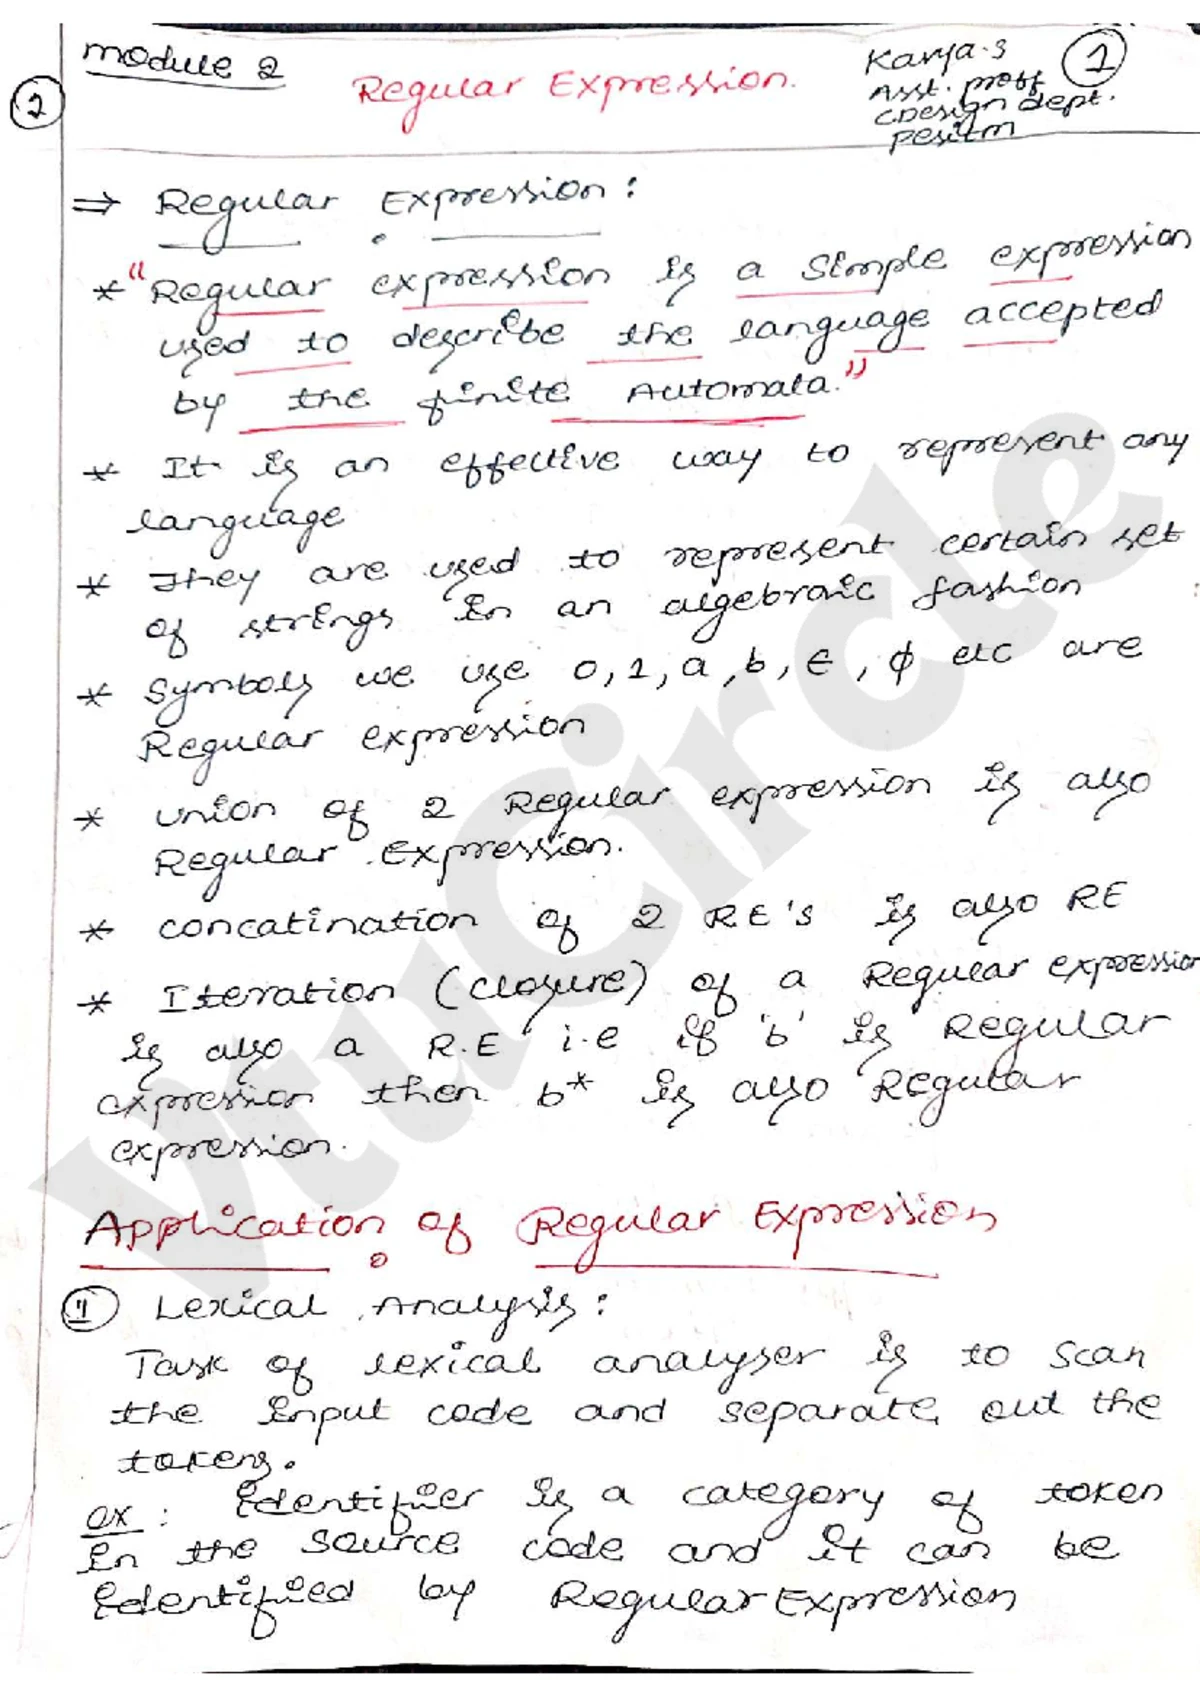 Module 2
Regular Expression.
Kavya.S
Asst. proff
C.Design dept.
Pesitm
1
2
⇒ Regular Expression:
* "Regular expression is a simple expression
used to describe the language accepted
by the finite Automata."
* It is an effective way to represent any
language
* They are used to represent certain set
of strings in an algebraic fashion
* Symbols we use 0, 1, a, b, ∈, ϕ etc are
Regular expression
* Union of 2 Regular expression is also
Regular Expression.
* concatination of 2 RE's is also RE
* Iteration (closure) of a Regular expression
is also a R.E i.e if 'b' is Regular
expression then b* is also Regular
expression.
Application of Regular Expression
1 Lexical Analysis:
Task of lexical analyser is to scan
the input code and separate out the
tokens.
ex: Identifier is a category of token
in the source code and it can be
identified by Regular Expression
VtuCircle